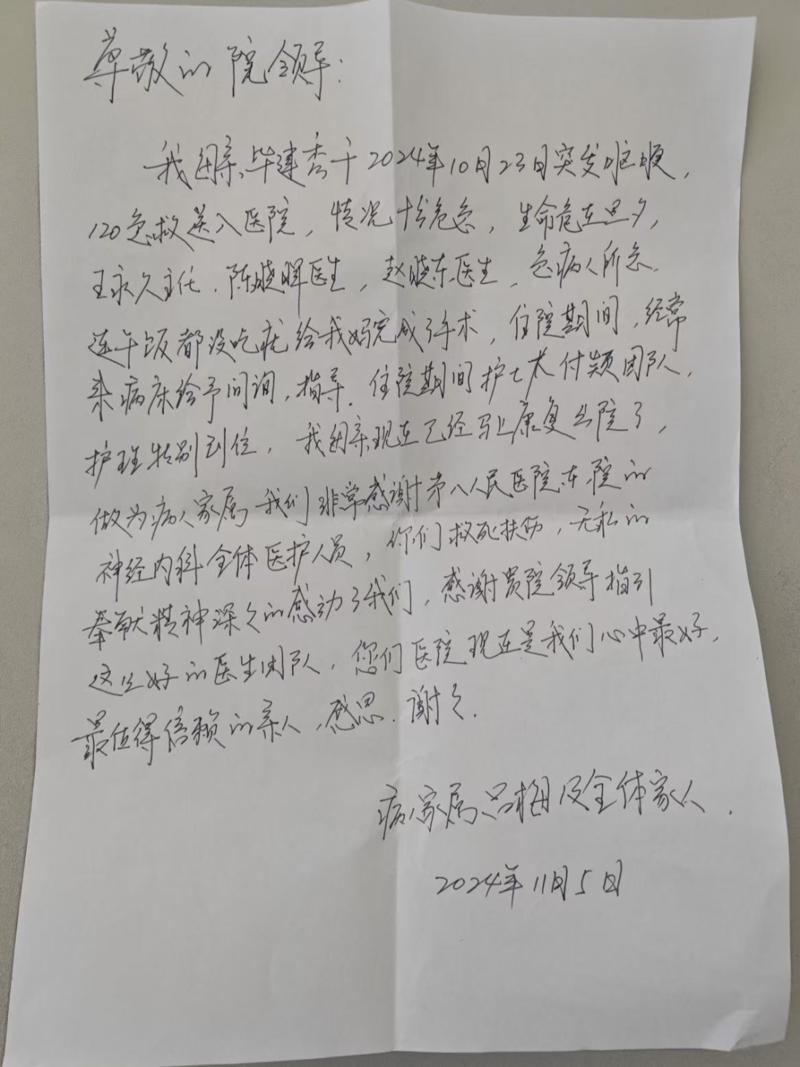 尊敬的院领导：
我母亲毕建秀于2024年10月23日突发脑梗，
120急救送入医院，情况十分危急，生命危在旦夕，
王永久主任、陈晓晖医生，赵晓东医生，急病人所急.
连午饭都没吃就给我妈完成了手术，住院期间，经常
来病床给予问询，指导．住院期间护士长付颖团队，
护理特别到位，我母亲现在已经马上康复出院了，
做为病人家属我们非常感谢第八人民医院东院的
神经内科全体医护人员，你们救死扶伤，无私的
奉献精神深深的感动了我们，感谢贵院领导指引
这么好的医生团队，您们医院现在是我们心中最好，
最值得信赖的亲人，感恩．谢谢．
病人家属吕梅及全体家人．
2024年11月5日